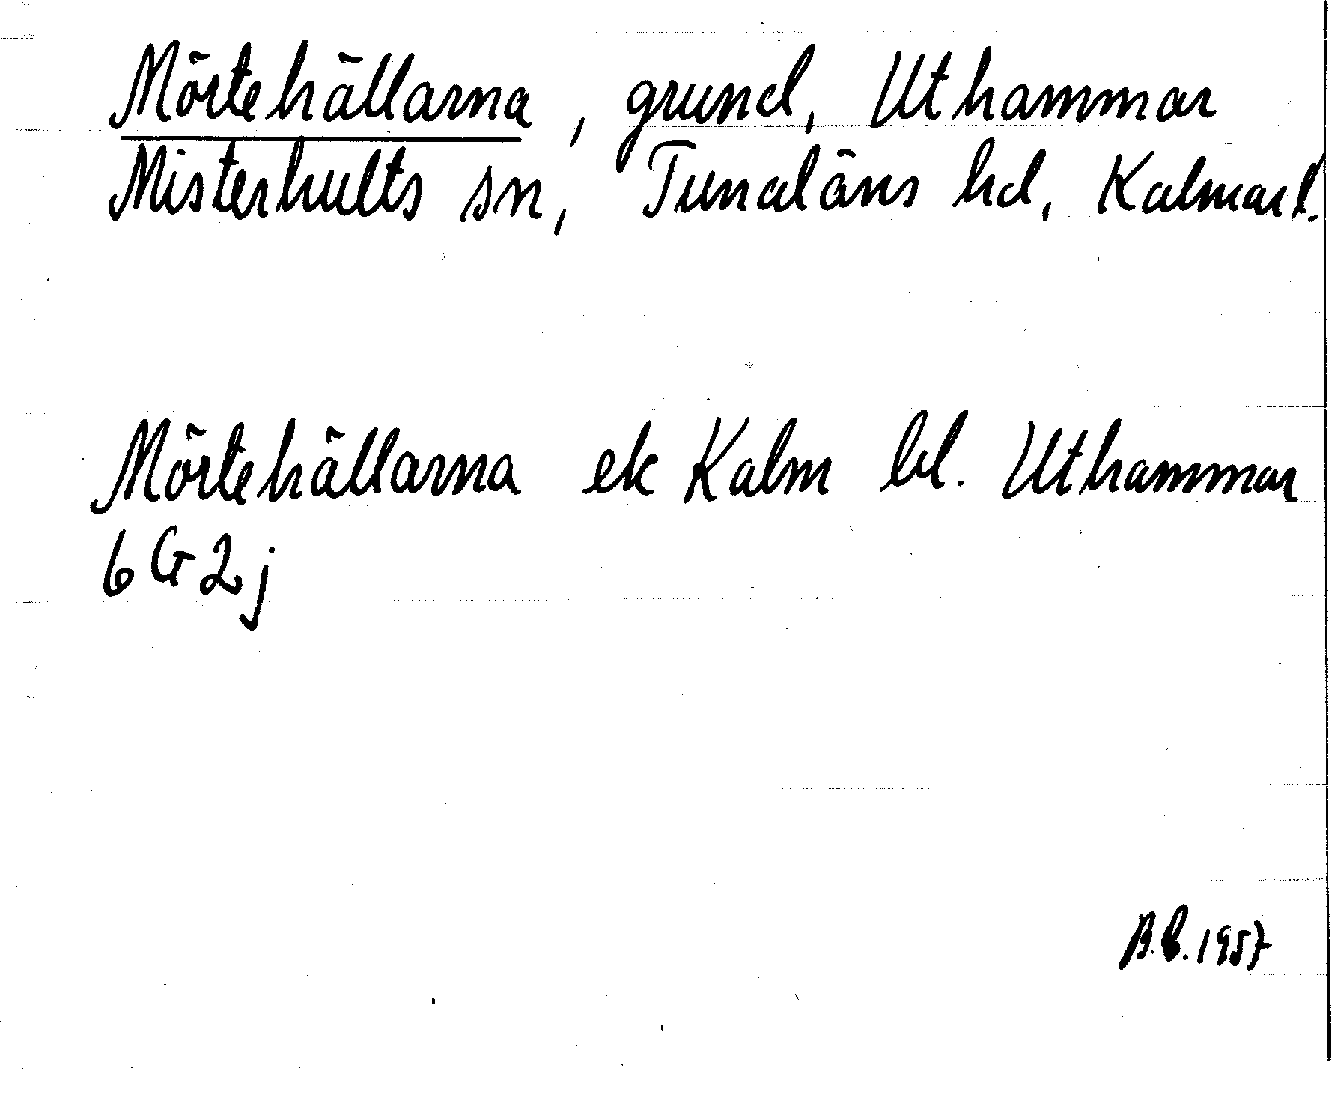 Mörtehällarna, grund, Uthammar
Misterhults sn, Tunaläns hd, Kalmarl.
Mörtehällarna ek Kalm bl. Uthammar
6G2j
B.C. 1957